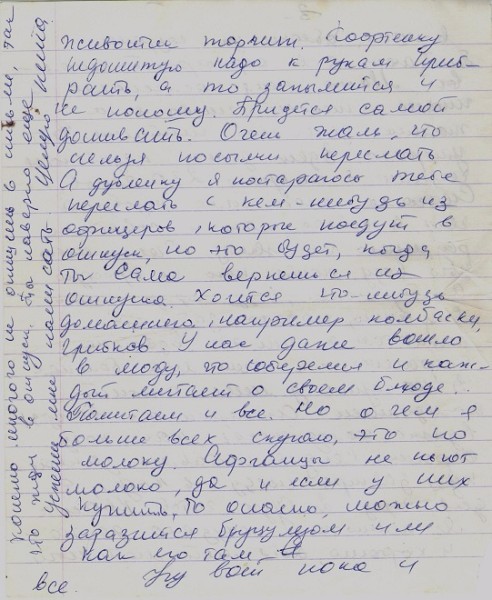 животик торчит. Кофтенку
недошитую надо к рукам приб-
рать, а то запылится и
не поношу. Придется самой
дошивать. Очень жаль, что
нельзя посылки переслать
А дубленку я постараюсь тебе
переслать с кем-нибудь из
офицеров, которые поедут в
отпуск, но это будет, когда
ты сама вернешься из
отпуска. Хочется что-нибудь
домашнего, например колбаски,
грибков. У нас даже вошло
в моду, что соберемся и каж-
дый мечтает о своем блюде..
Помечтаем и все. Но о чем я
больше всех скучаю, это по
молоку. Афганцы не пьют
молоко, да и если у них
купить, то опасно, можно
заразится бруцулезом или
как его там
Ну вот пока и
все.
Конечно многого не опишешь в письме, так
что жди в отпуск. Ты наверно еще
успеешь мне написать. Целую Нина